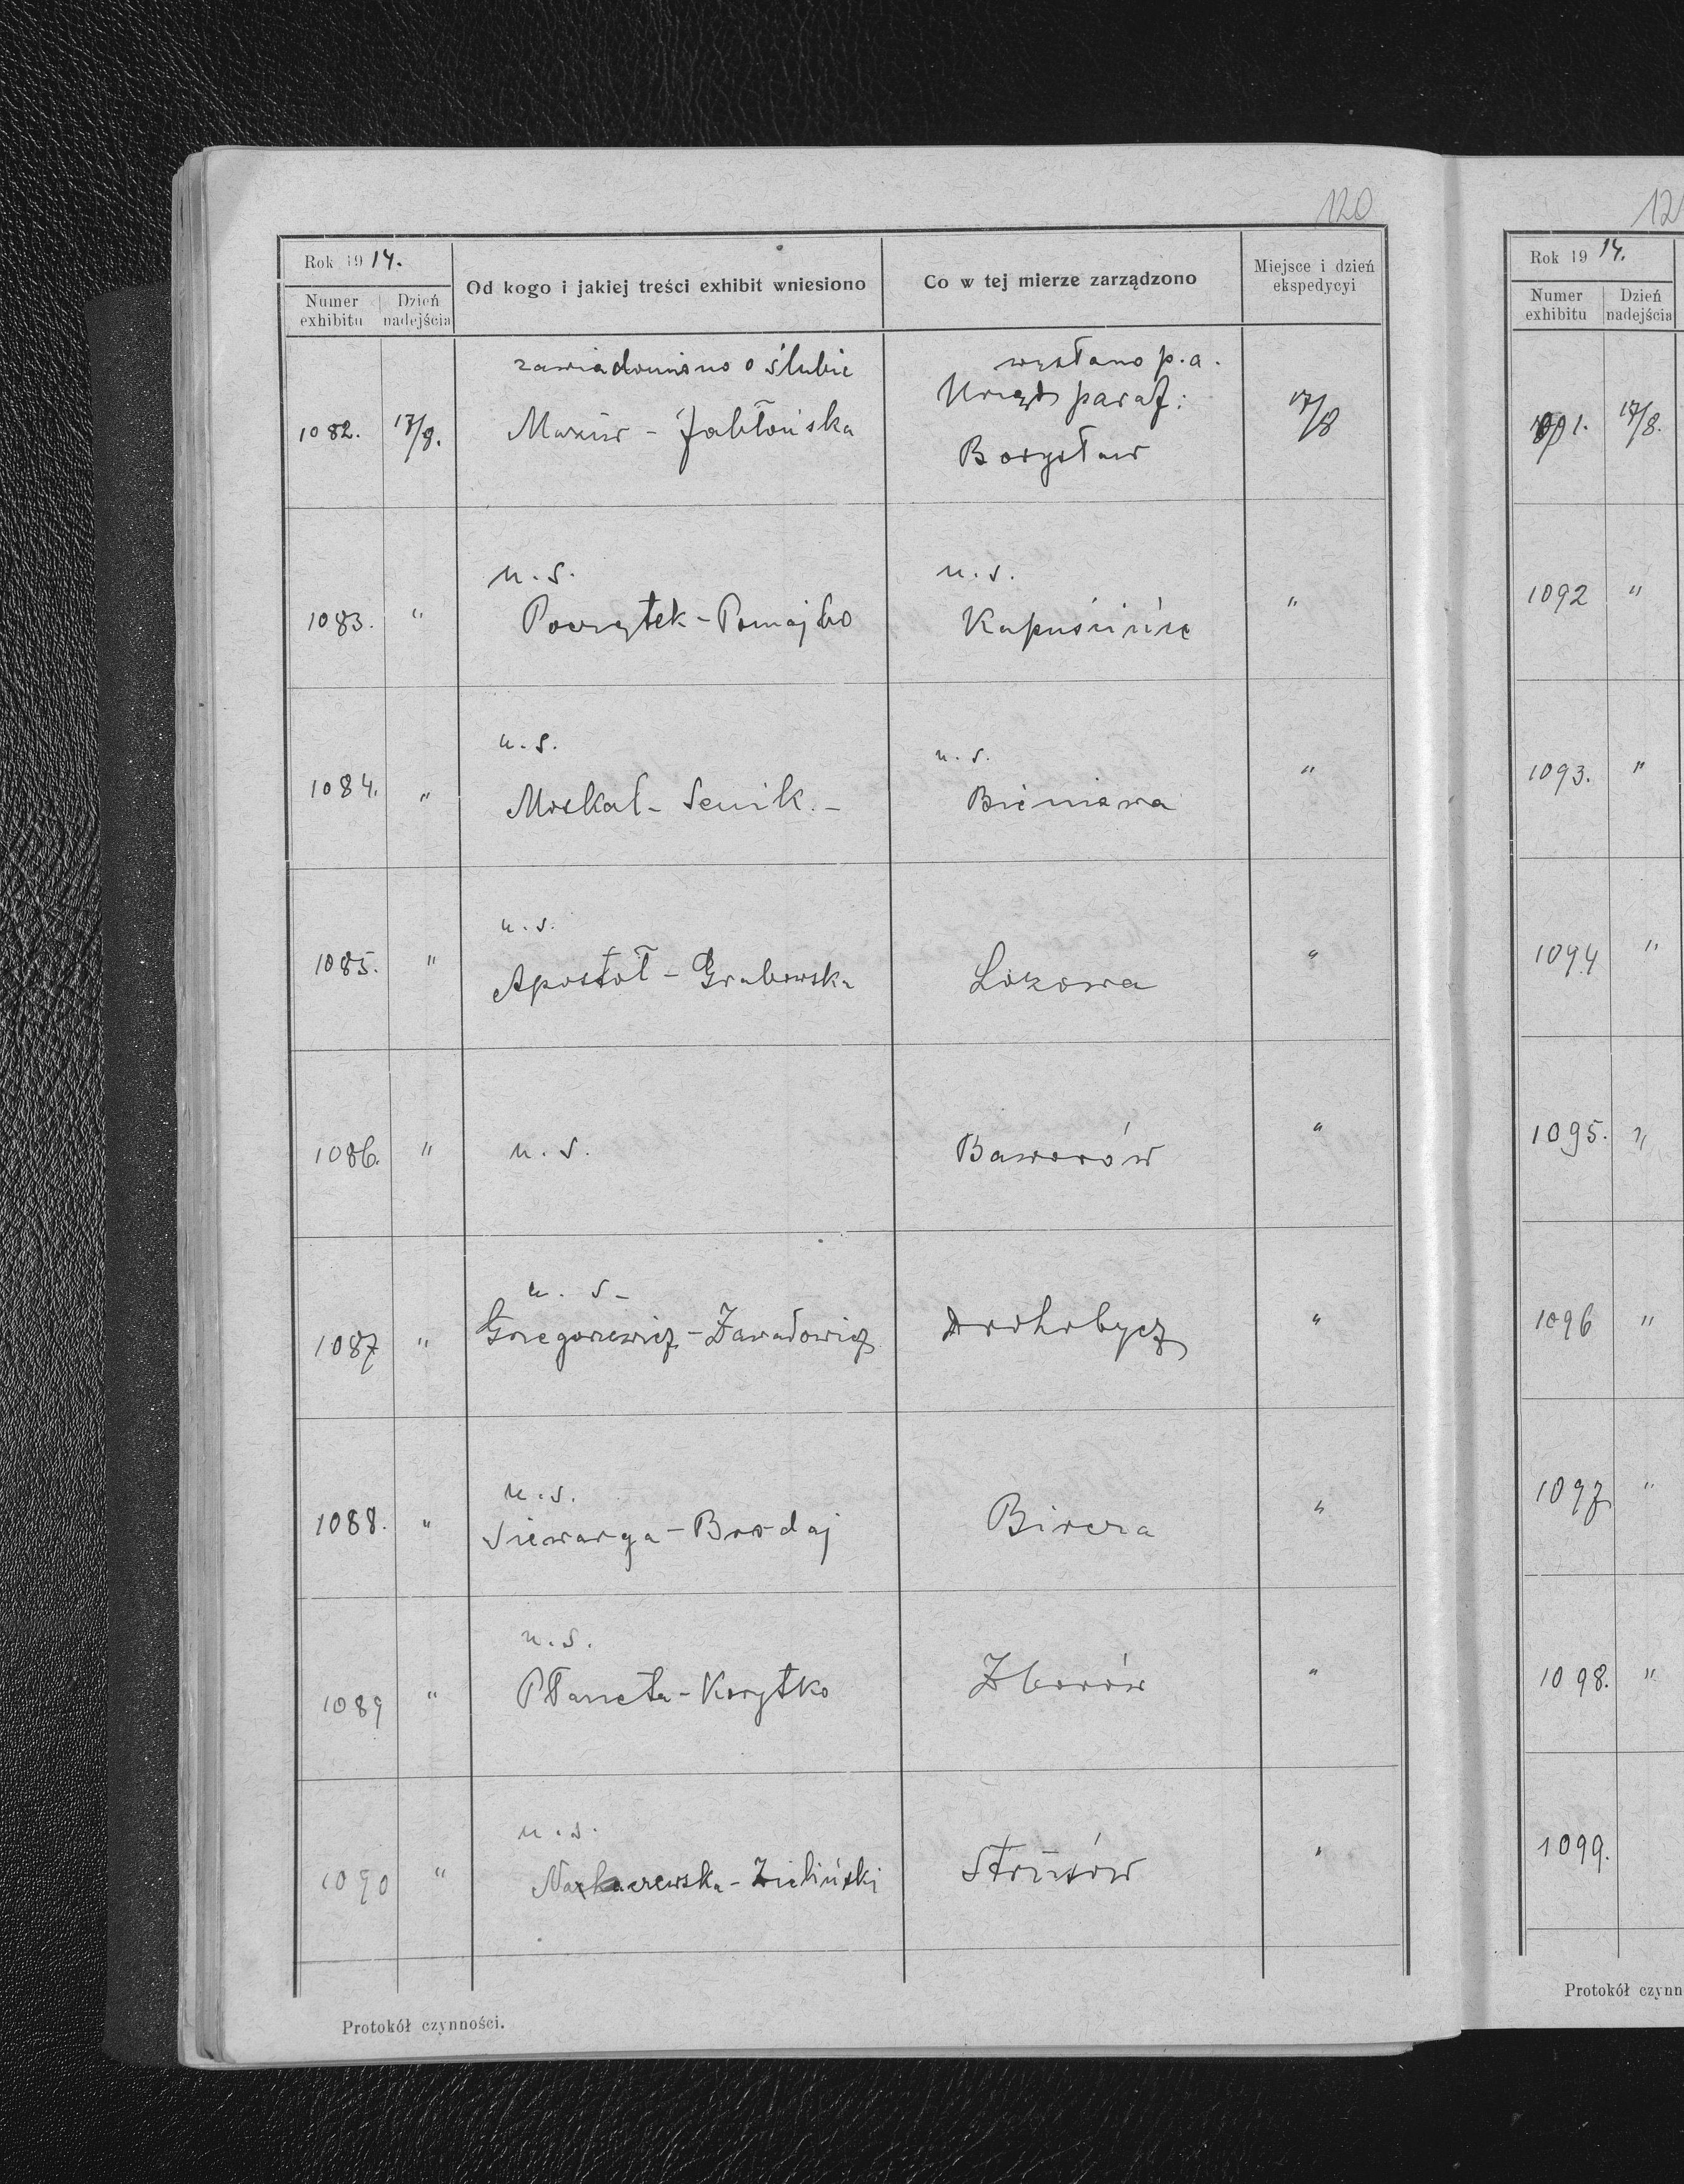 120
Rok 1914.
Numer exhibitu
Dzień nadejścia
Od kogo i jakiej treści exhibit wniesiono
Co w tej mierze zarządzono
Miejsce i dzień ekspedycyi
zawiadomiono o ślubie
wysłano p.a.
1082. 17/8. Mazur - Jabłońska
Urząd paraf:
Borysław
17/8
u. s.
u. s.
1083. " Początek - Pomajbo Kapuścińce "
u. s.
u. s.
1084. " Moskal - Senik. - Bieniawa "
u. s.
1085. " Apostoł - Grabowska Łozowa "
1086. " u. s. Baworów "
u. s -
1087 " Grzegorzewicz - Zawadowicz Drohobycz "
u. s.
1088. " Siewarga - Brodaj Bircza "
u. s.
1089 " Płaneta - Korytko Zborów "
u. s.
1090 " Zieliński Strusów "
Protokół czynności.
12
Rok 1914.
Numer exhibitu
Dzień nadejścia
1091. 17/8.
1092 "
1093. "
1094 "
1095. "
1096 "
1097 "
1098. "
1099.
Protokół czynn